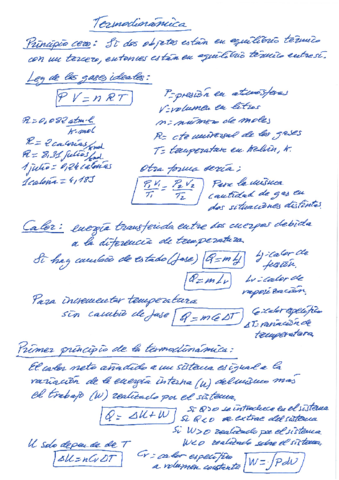 Termodinámica
Principio cero: Si dos objetos están en equilibrio térmico
con un tercero, entonces están en equilibrio térmico entre sí.
Ley de los gases ideales:
PV = nRT
P = presión en atmósferas
V = volumen en litros
n = número de moles
R = cte universal de los gases
T = temperatura en Kelvin, K.
R = 0,082 atm·l / K·mol
R = 2 calorías/K·mol
R = 8,31 julios/K·mol
1 julio = 0,24 calorías
1 caloría = 4,18 J
Otra forma sería:
P₁V₁/T₁ = P₂V₂/T₂
Para la misma
cantidad de gas en
dos situaciones distintas
Calor: energía transferida entre dos cuerpos debida
a la diferencia de temperatura.
Si hay cambio de estado (fase) Q = m Lf
Lf = calor de
fusión.
Q = m Lv
Lv = calor de
vaporización.
Para incrementar temperatura
sin cambio de fase Q = m c ΔT
C = calor específico
ΔT: variación de
temperatura
Primer principio de la termodinámica:
El calor neto añadido a un sistema es igual a la
variación de la energía interna (U) del mismo más
el trabajo (W) realizado por el sistema.
Q = ΔU + W
Si Q>0 se introduce en el sistema
Si Q<0 se extrae del sistema
Si W>0 realizado por el sistema
W<0 realizado sobre el sistema.
U solo depende de T
ΔU = n Cv ΔT
Cv = calor específico
a volumen constante
W = ∫PdV